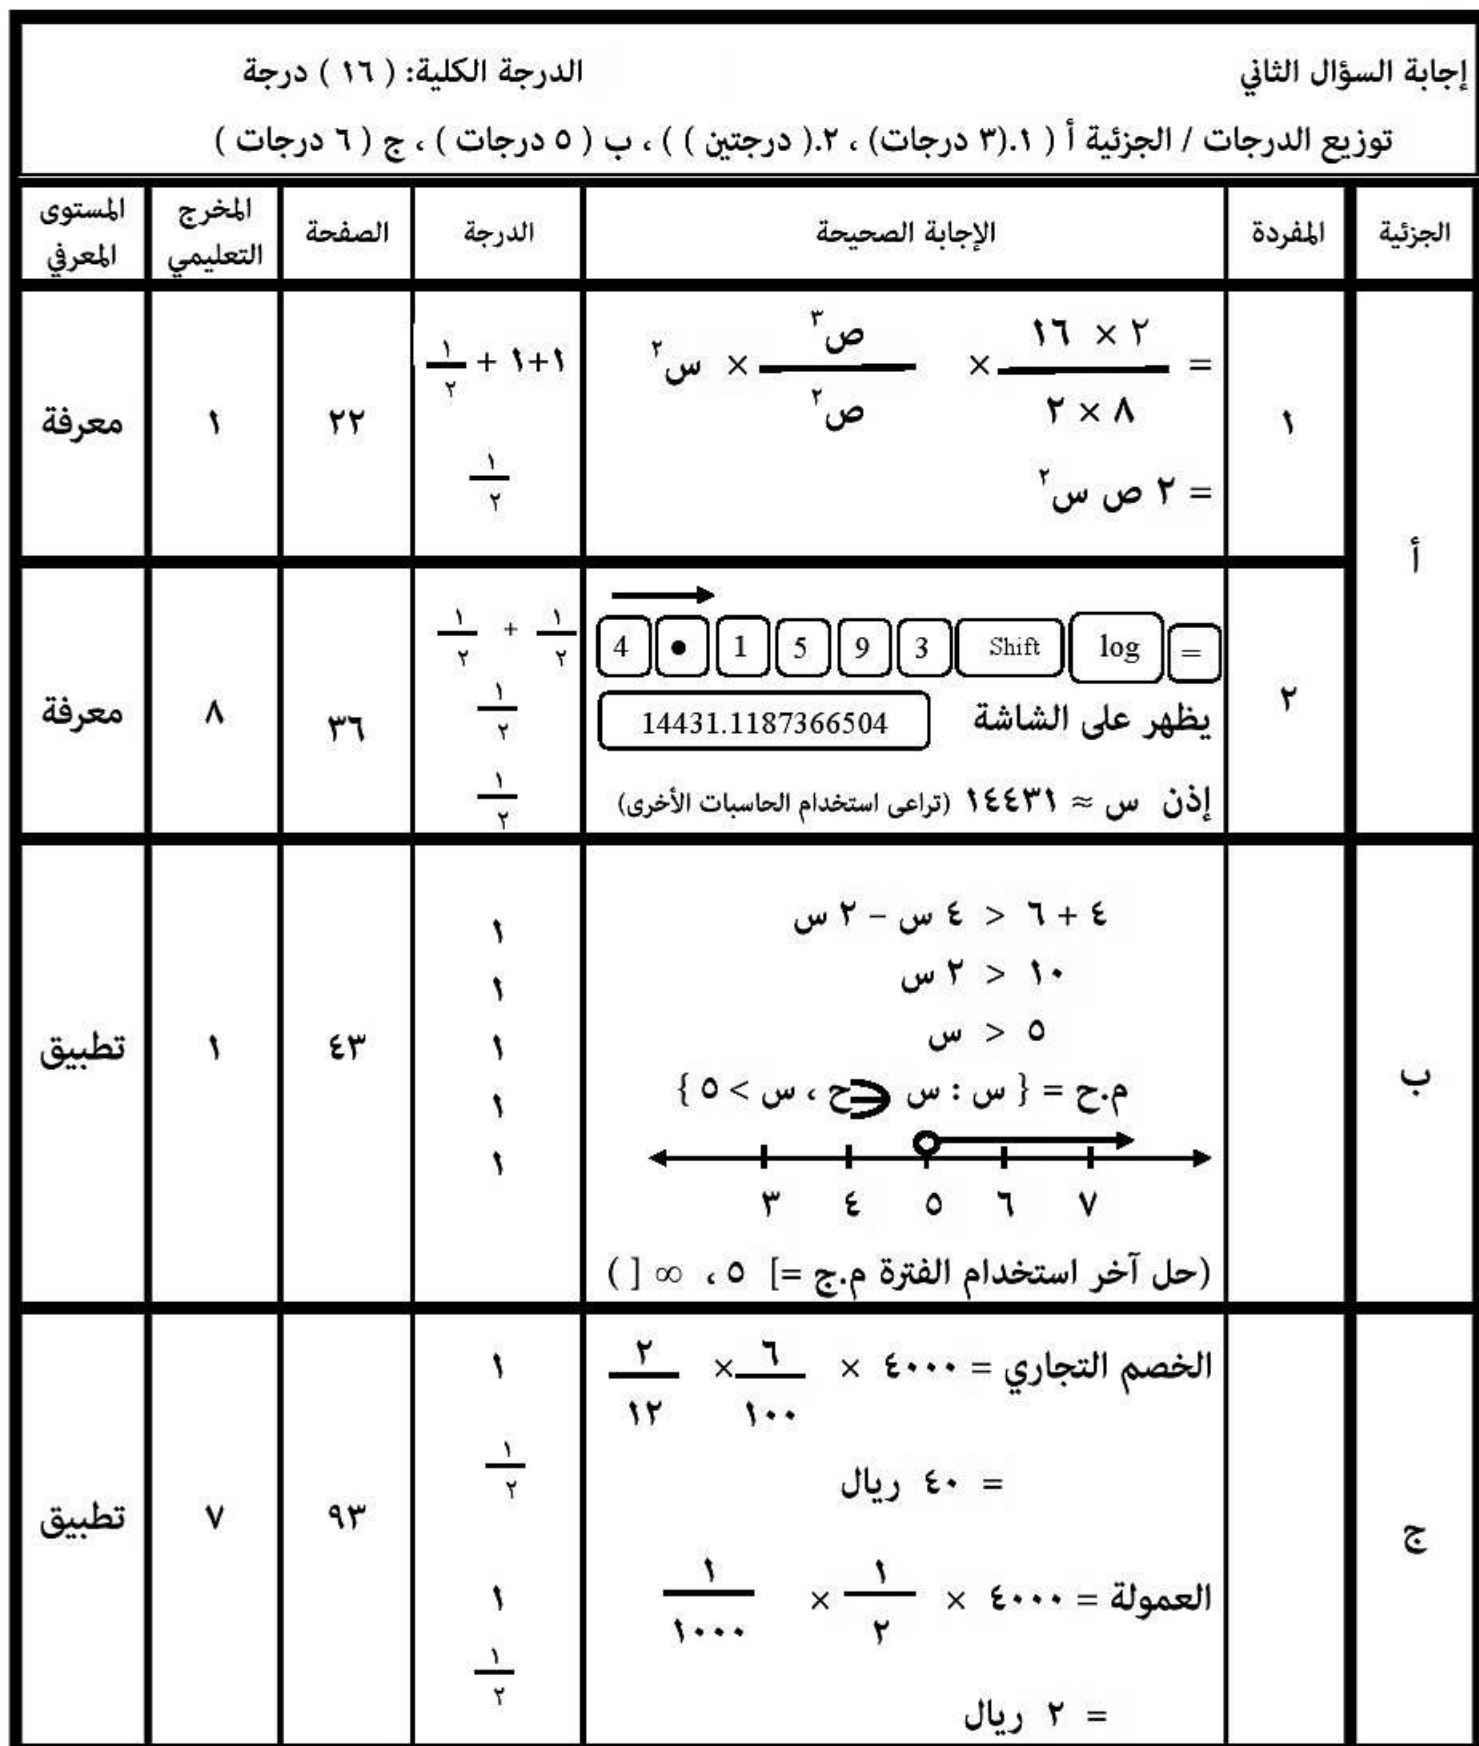 إجابة السؤال الثاني الدرجة الكلية: ( ١٦ ) درجة
توزيع الدرجات / الجزئية أ ( ١.(٣ درجات) ، ٢.( درجتين ) ) ، ب ( ٥ درجات ) ، ج ( ٦ درجات )
الجزئية المفردة الإجابة الصحيحة الدرجة الصفحة المخرج التعليمي المستوى المعرفي
أ
١
= ٢ × ١٦ / ٨ × ٢ × ص³ / ص² × س²
= ٢ ص س²
١+١ + ١/٢
١/٢
٢٢
١
معرفة
٢
4 • 1 5 9 3 Shift log =
يظهر على الشاشة 14431.1187366504
إذن س ≈ ١٤٤٣١ (تراعى استخدام الحاسبات الأخرى)
١/٢ + ١/٢
١/٢
١/٢
٣٦
٨
معرفة
ب
٤ + ٦ < ٤ س – ٢ س
١٠ < ٢ س
٥ < س
م.ح = { س : س ∈ ح ، س > ٥ }
٣ ٤ ٥ ٦ ٧
(حل آخر استخدام الفترة م.ج =] ٥ ، ∞ [ )
١
١
١
١
١
٤٣
١
تطبيق
ج
الخصم التجاري = ٤٠٠٠ × ٦/١٠٠ × ٢/١٢
= ٤٠ ريال
العمولة = ٤٠٠٠ × ١/٢ × ١/١٠٠٠
= ٢ ريال
١
١/٢
١
١/٢
٩٣
٧
تطبيق